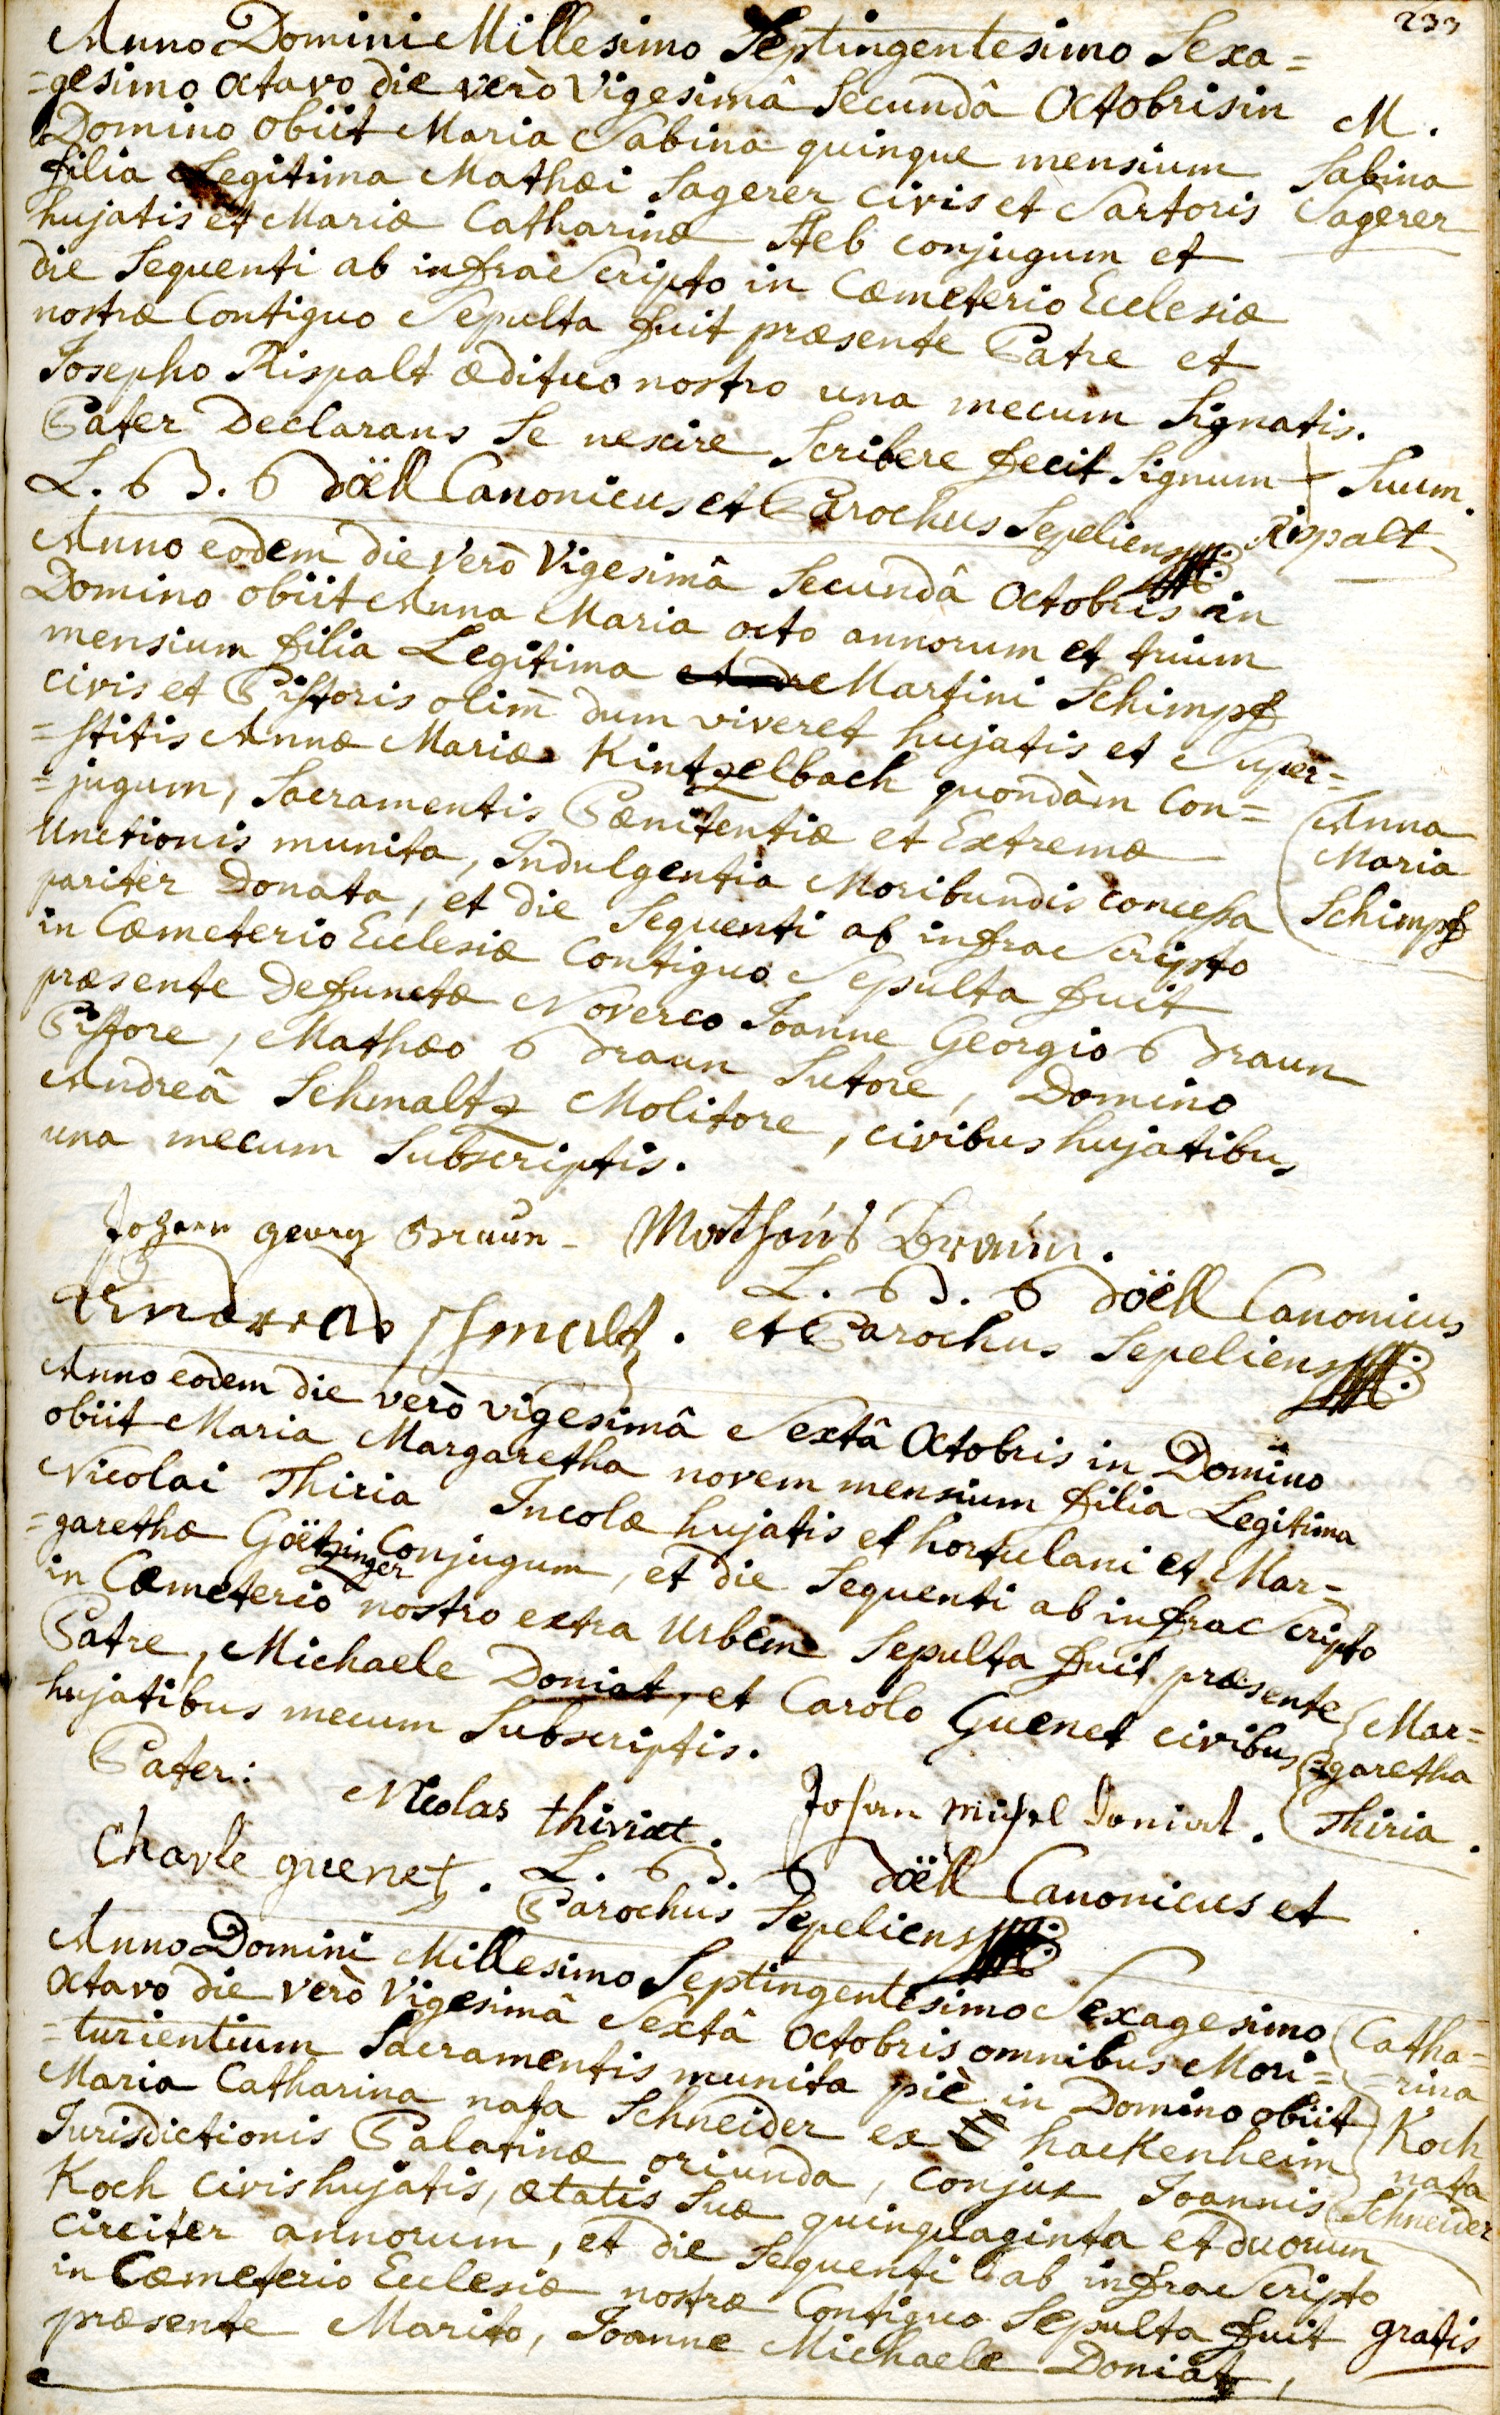 233
Anno Domini Millesimo Septingentesimo Sexa=
=gesimo octavo die verò Vigesimâ Secundâ Octobris in
Domino obiit Maria Sabina quinque mensium
filia Legitima Mathæi Sagerer civis et Sartoris
hujatis et Mariæ Catharinæ Steb conjugum et
die Sequenti ab infrascripto in Cœmeterio Ecclesiæ
nostræ Contiguo Sepulta fuit præsente Patre et
Josepho Rispalt ædituo nostro una mecum Signatis.
Pater Declarans Se nescire Scribere fecit Signum + Suum.
L. B. Böell Canonicus et Parochus Sepeliens Rispalt
M.
Sabina
Sagerer
Anno eodem die verò Vigesimâ Secundâ Octobris in
Domino obiit Anna Maria octo annorum et trium
mensium filia Legitima Martini Schimpf
civis et Pistoris olim dum viveret hujatis et Super=
=stitis Annæ Mariæ Kintzelbach quondàm Con=
=jugum, Sacramentis Pœnitentiæ et Extremæ
Unctionis munita, Indulgentia Moribundis concessa
pariter Donata, et die Sequenti ab infrascripto
in Cœmeterio Ecclesiæ Contiguo Sepulta fuit
præsente Defunctæ Noverco Joanne Georgio Braun
Pistore, Mathæo Braun Sutore, Domino
Andreâ Schmaltz Molitore, civibus hujatibus
una mecum Subscriptis.
Anna
Maria
Schimpf
Johann georg Braun Mathæus Braun.
Andreas Schmaltz. L. B. Böell Canonicus
et Parochus Sepeliens
Anno eodem die verò vigesimâ Sextâ Octobris in Domino
obiit Maria Margaretha novem mensium filia Legitima
Nicolai Thiria Incolæ hujatis et hortulani et Mar=
=garethæ Göetzinger Conjugum, et die Sequenti ab infrascripto
in Cœmeterio nostro extra Urbem Sepulta fuit præsente
Patre, Michaele Doniat, et Carolo Guenet civibus
hujatibus mecum Subscriptis.
Mar=
=garetha
Thiria.
Pater: Nicolas thiriat. Johan Michel Doniat.
Charle guenet. L. B. Böell Canonicus et
Parochus Sepeliens
Anno Domini Millesimo Septingentesimo Sexagesimo
Octavo die verò Vigesimâ Sextâ Octobris omnibus Mori=
=turientium Sacramentis munita piè in Domino obiit
Maria Catharina nata Schneider ex hackenheim
Jurisdictionis Palatinæ oriunda, conjux Joannis
Koch civis hujatis, ætatis Suæ quinquaginta et duorum
circiter annorum, et die Sequenti ab infrascripto
in Cœmeterio Ecclesiæ nostræ Contiguo Sepulta fuit
præsente Marito, Joanne Michaele Doniat,
Catha=
=rina
Koch
nata
Schneider
gratis